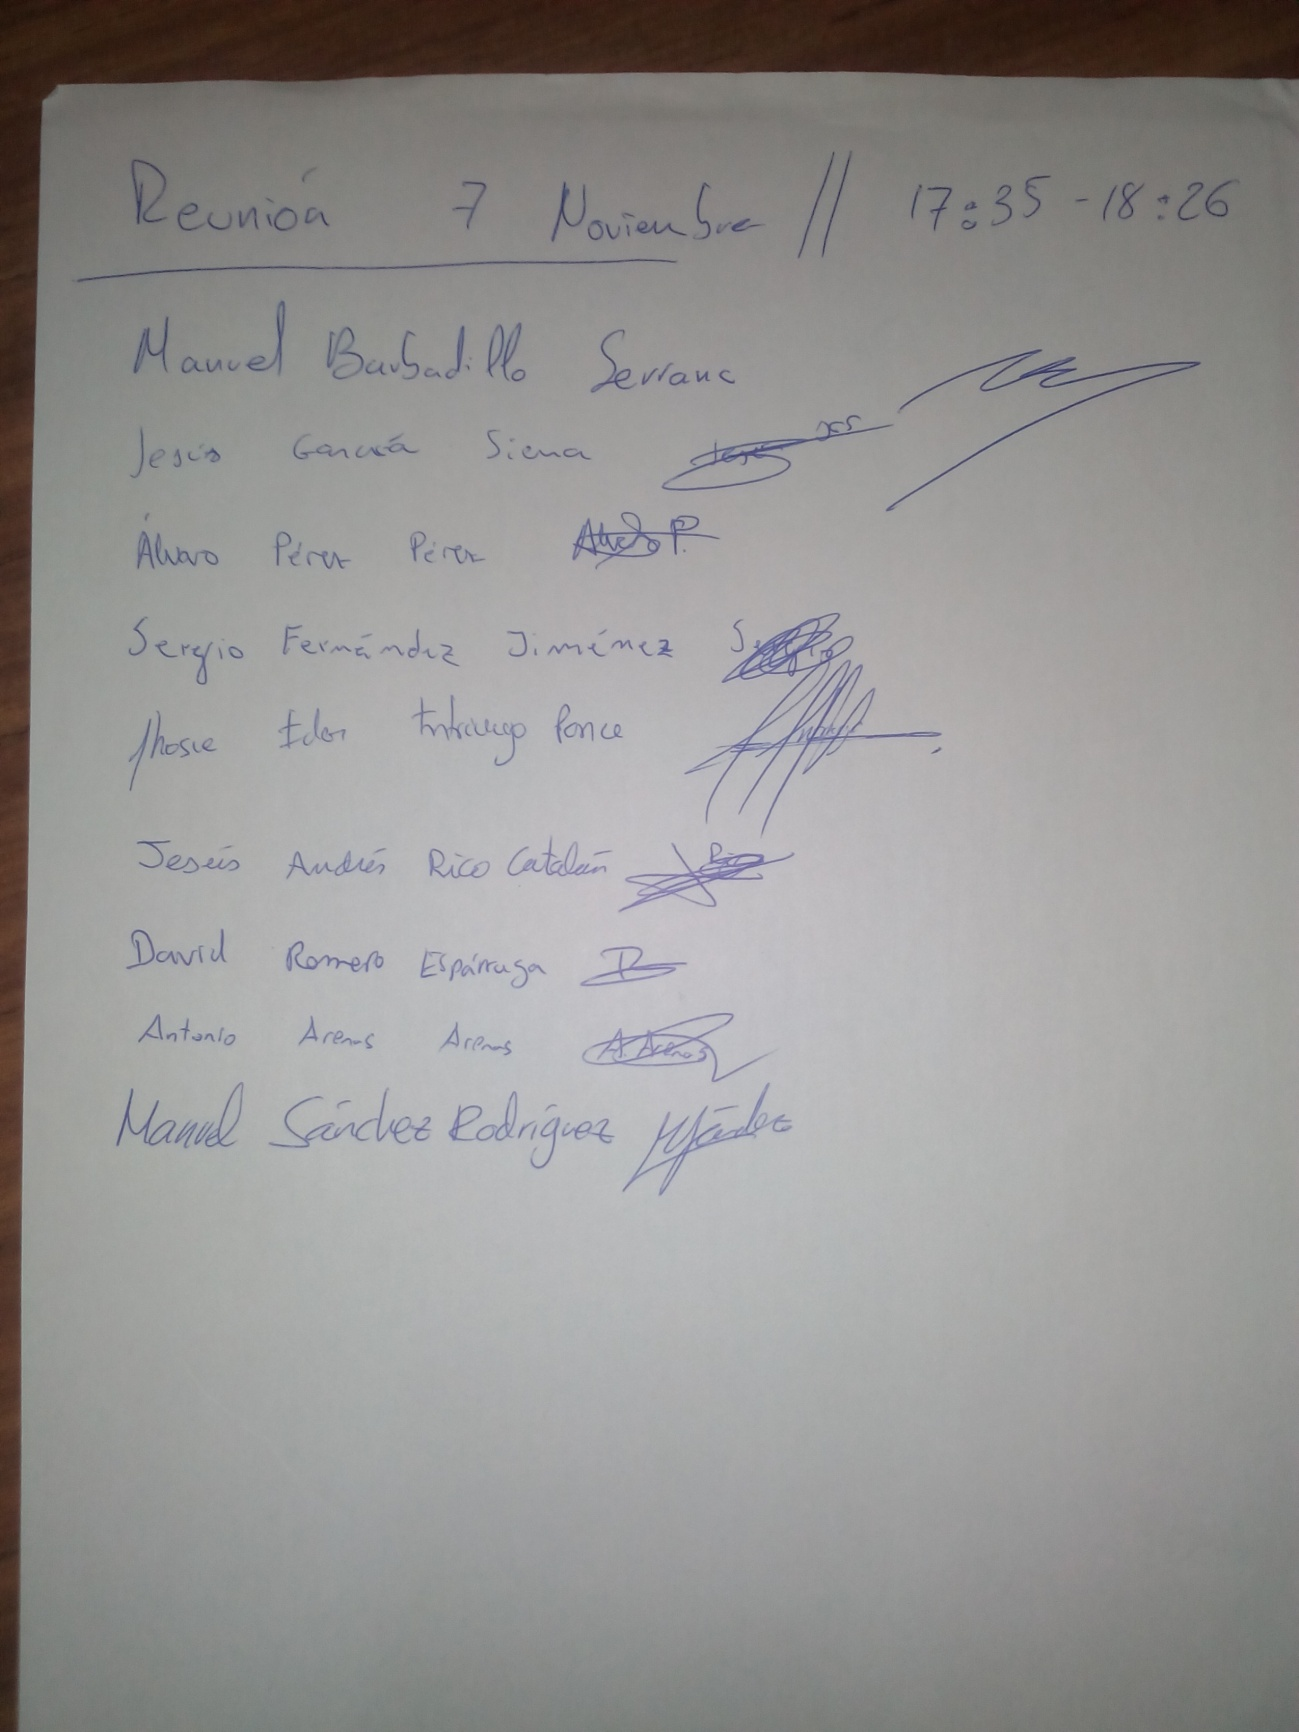 Reunión 7 Noviembre // 17:35 - 18:26
Manuel Barbadillo Serrano
Jesús García Siena JGS
Álvaro Pérez Pérez Álvaro P.
Sergio Fernández Jiménez Sergio
Jhosie Eder Intriago Ponce
Jesús Andrés Rico Catalán Rico
David Romero Espárraga D
Antonio Arenas Arenas A. Arenas
Manuel Sánchez Rodríguez